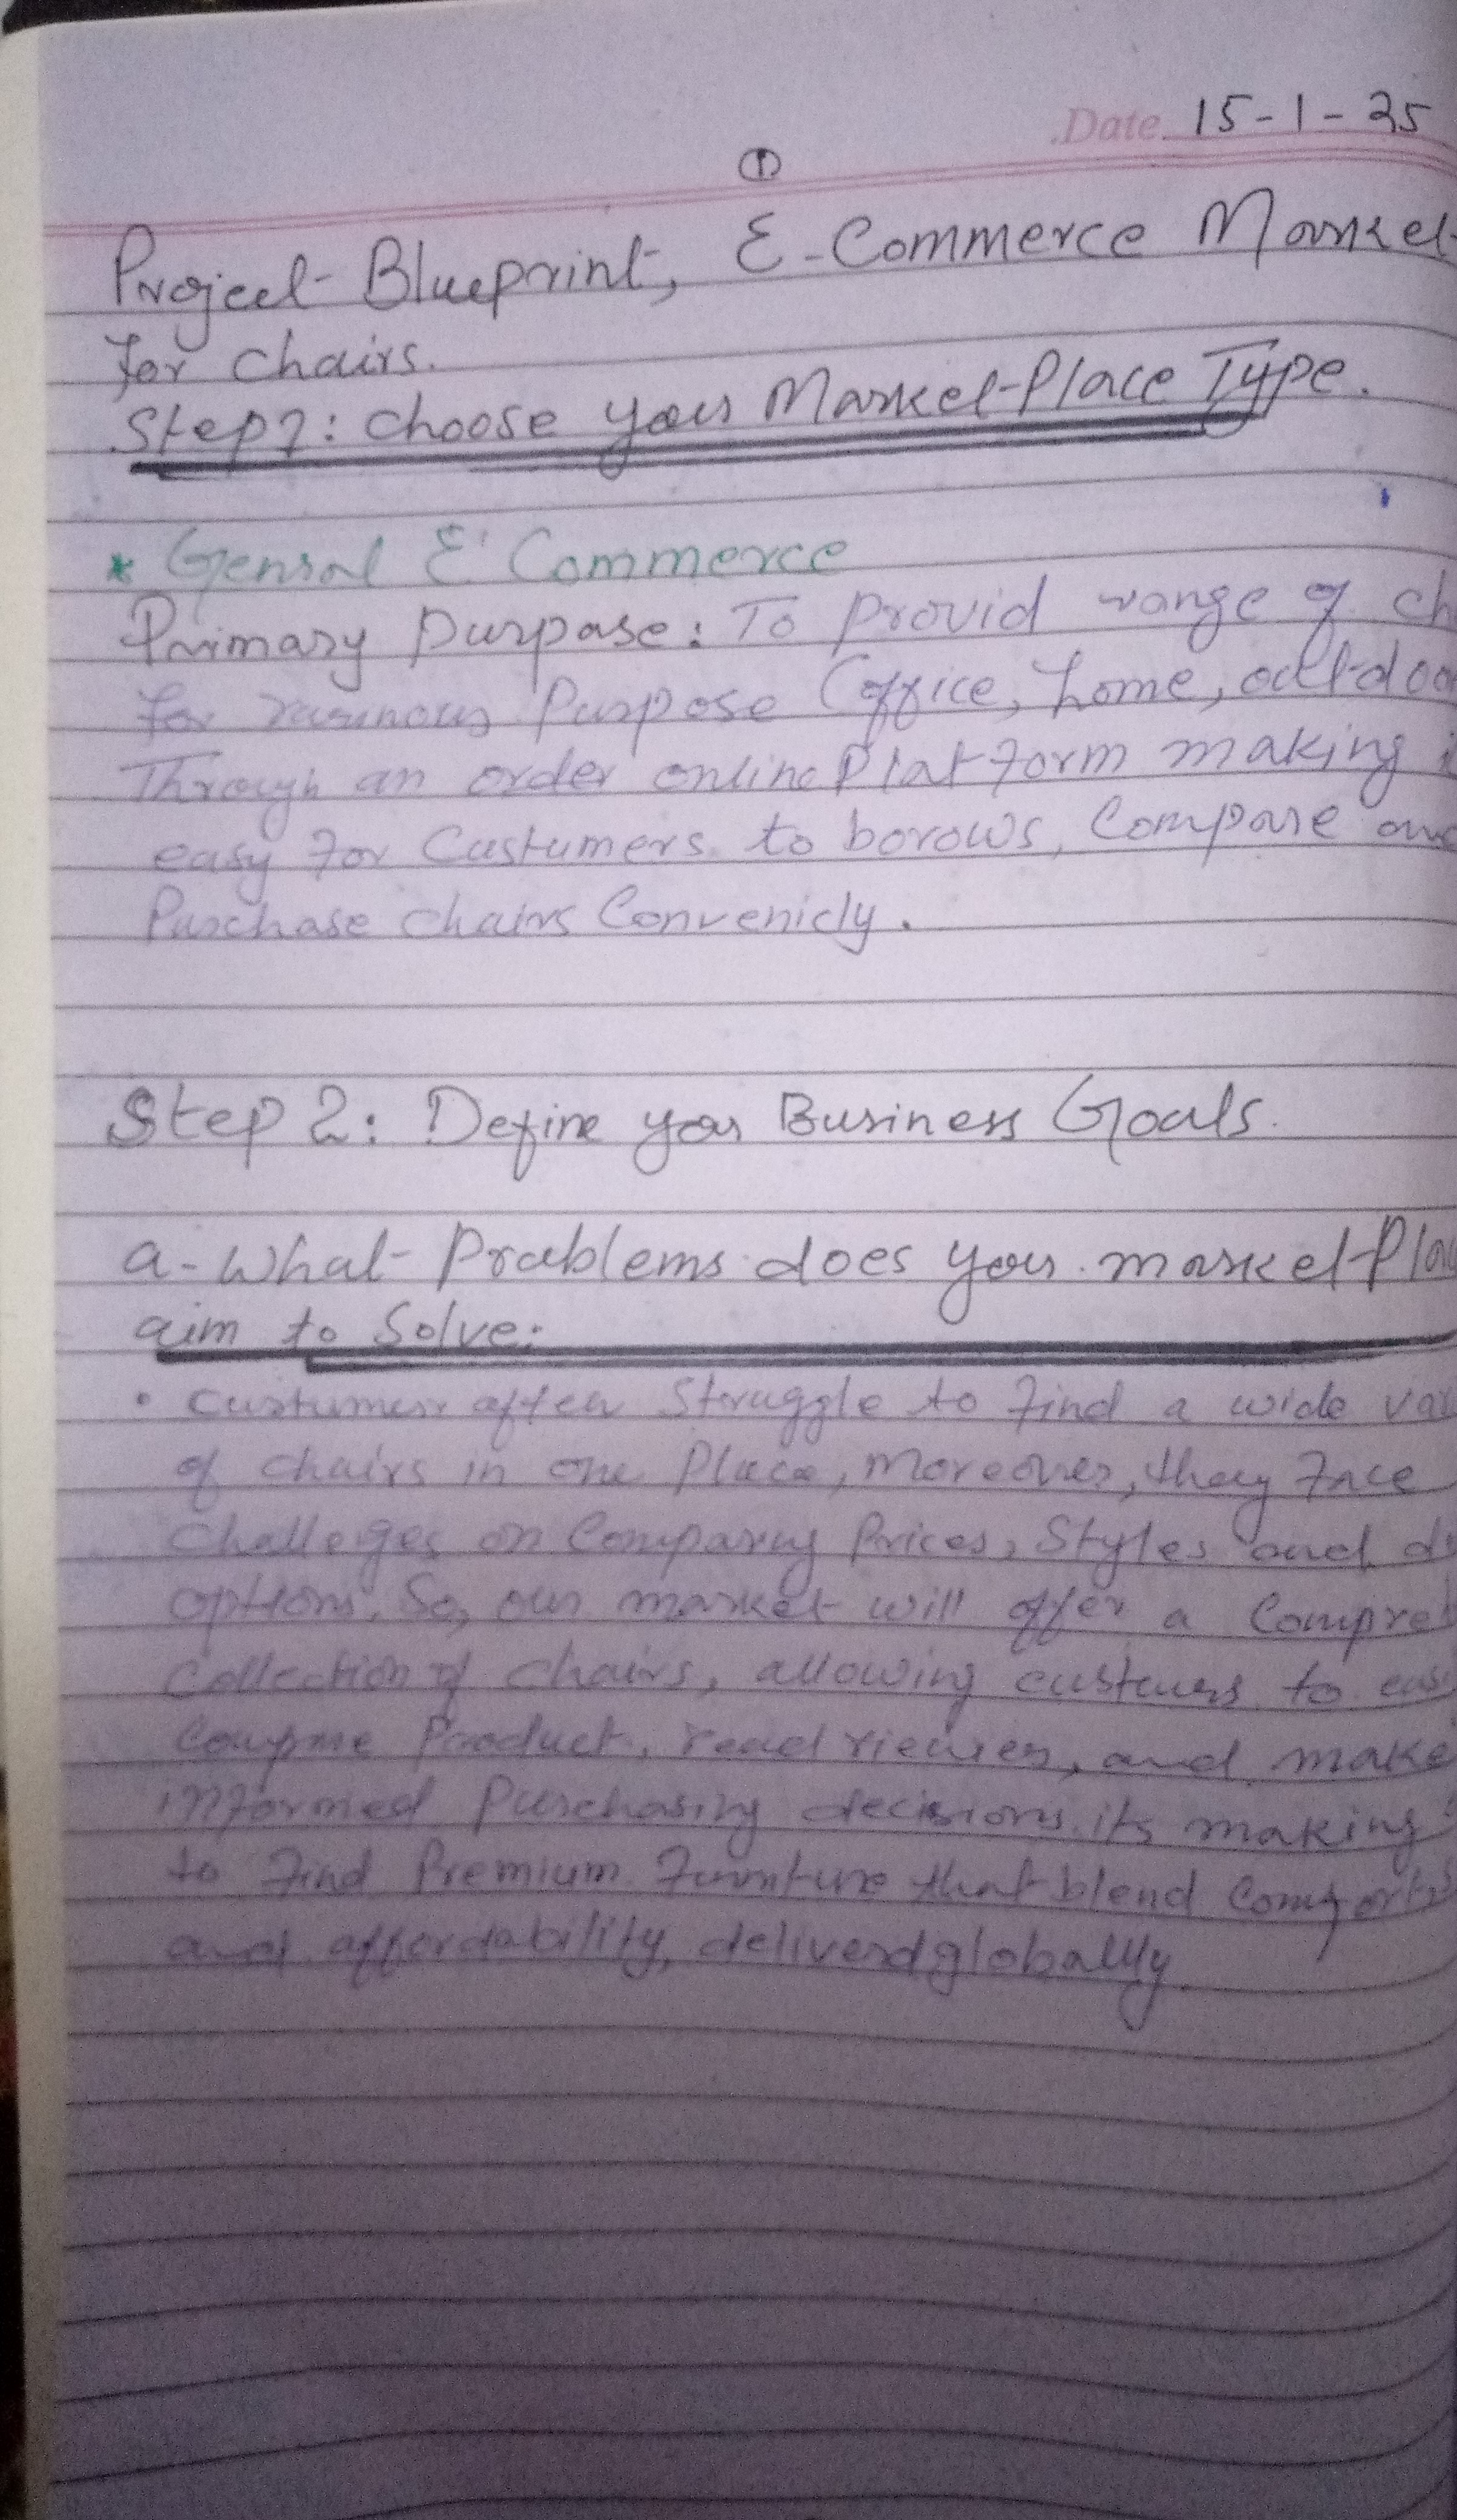 Date. 15-1-25
①
Project Blueprint, E-Commerce Market
for chairs.
Step1: choose your Market-Place Type.
* Genral E' Commerce
Primary purpose: To provid range of ch
for purpose (office, home, outdoo
Through an order online Platform making i
easy for Custumers to borows, Compare and
Purchase chairs Convenicly.
Step 2: Define your Business Goals.
a- What Problems does your market Pla
aim to Solve:
• custumers often Struggle to find a wide var
of chairs in one Place, Moreover, they face
Challeges on Comparing Prices, Styles and d
options. So, our market will offer a Compreh
Collection of chairs, allowing custumers to eas
Compare Product, read and make
informed Purchasing decisions. its making
to find Premium Furniture that blend Comfort
and affordability, deliverd globally